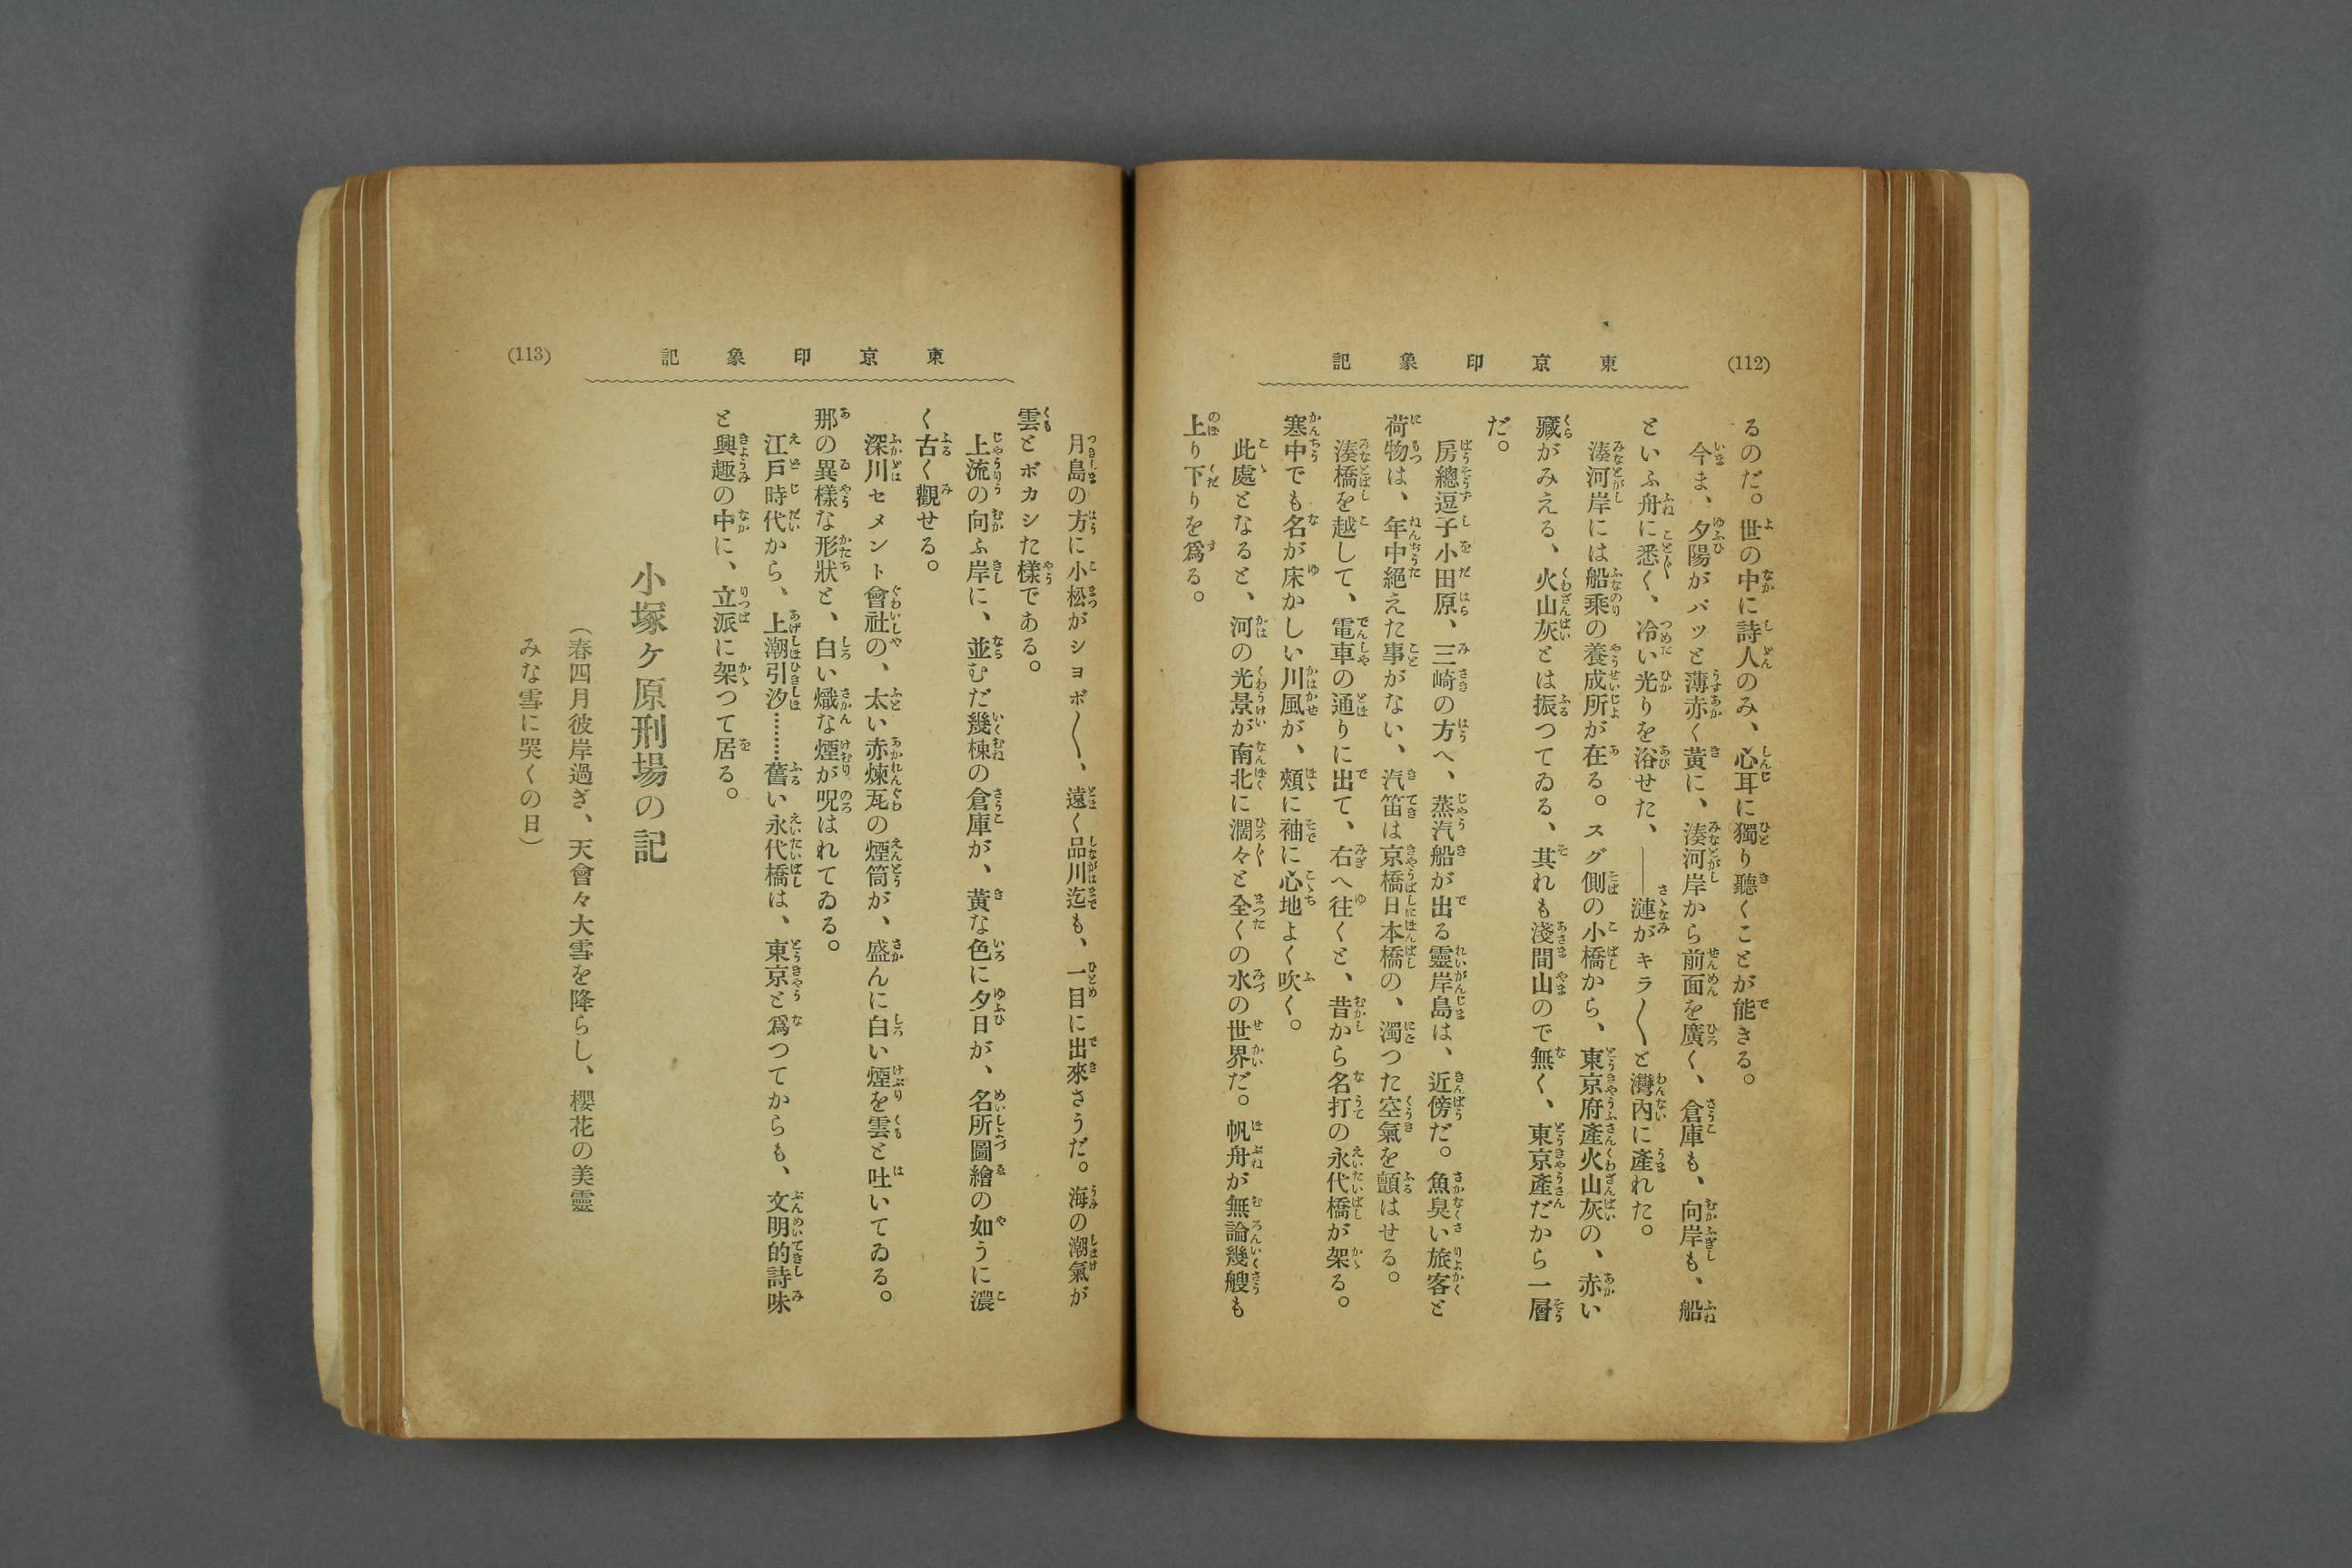 (112)
東京印象記
るのだ。世の中に詩人のみ、心耳に獨り聽くことが能きる。
今ま、夕陽がパッと薄赤く黃に、湊河岸から前面を廣く、倉庫も、向岸も、船
といふ舟に悉く、冷い光りを浴せた、――漣がキラ〱と灣內に產れた。
湊河岸には船乘の養成所が在る。スグ側の小橋から、東京府產火山灰の、赤い
藏がみえる、火山灰とは振つてゐる、其れも淺間山ので無く、東京產だから一層
だ。
房總逗子小田原、三崎の方へ、蒸汽船が出る靈岸島は、近傍だ。魚臭い旅客と
荷物は、年中絕えた事がない、汽笛は京橋日本橋の、濁つた空氣を顫はせる。
湊橋を越して、電車の通りに出て、右へ往くと、昔から名打の永代橋が架る。
寒中でも名が床かしい川風が、頰に袖に心地よく吹く。
此處となると、河の光景が南北に濶々と全くの水の世界だ。帆舟が無論幾艘も
上り下りを爲る。
東京印象記
(113)
月島の方に小松がショボ〱、遠く品川迄も、一目に出來さうだ。海の潮氣が
雲とボカシた樣である。
上流の向ふ岸に、並むだ幾棟の倉庫が、黃な色に夕日が、名所圖繪の如うに濃
く古く觀せる。
深川セメント會社の、太い赤煉瓦の煙筒が、盛んに白い煙を雲と吐いてゐる。
那の異樣な形狀と、白い熾な煙が呪はれてゐる。
江戶時代から、上潮引汐………舊い永代橋は、東京と爲つてからも、文明的詩味
と興趣の中に、立派に架つて居る。
小塚ヶ原刑場の記
（春四月彼岸過ぎ、天會々大雪を降らし、櫻花の美靈
みな雪に哭くの日）